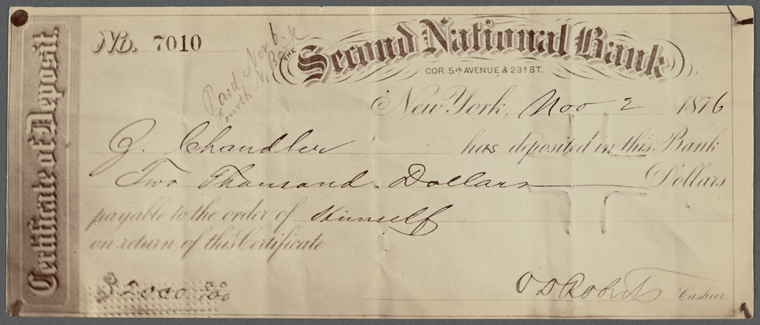 Certificate of Deposit.
No. 7010
Paid Nov 6.
Fourth N. Bank
THE Second National Bank
COR. 5th AVENUE & 23d ST.
New York, Nov 2 1876
Z. Chandler has deposited in this Bank
Two Thousand Dollars Dollars
payable to the order of Himself
on return of this Certificate
$2000.00/100
O D Roberts Cashier